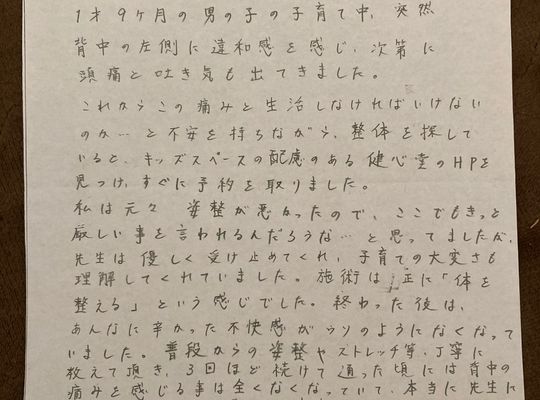 1才9ヶ月の男の子の子育て中、突然
背中の左側に違和感を感じ、次第に
頭痛と吐き気も出てきました。
これからこの痛みと生活しなければいけない
のか…と不安を持ちながら、整体を探して
いると、キッズスペースの配慮のある健心堂のHPを
見つけ、すぐに予約を取りました。
私は元々 姿整が悪かったので、ここでもきっと
厳しい事を言われるんだろうな…と思ってましたが、
先生は優しく受け止めてくれ、子育ての大変さも
理解してくれていました。施術は正に「体を
整える」という感じでした。終わった後は、
あんなに辛かった不快感がウソのようになくなって
いました。普段からの姿整やストレッチ等、丁寧に
教えて頂き、3回ほど続けて通った頃には背中の
痛みを感じる事は全くなくなっていて、本当に先生に